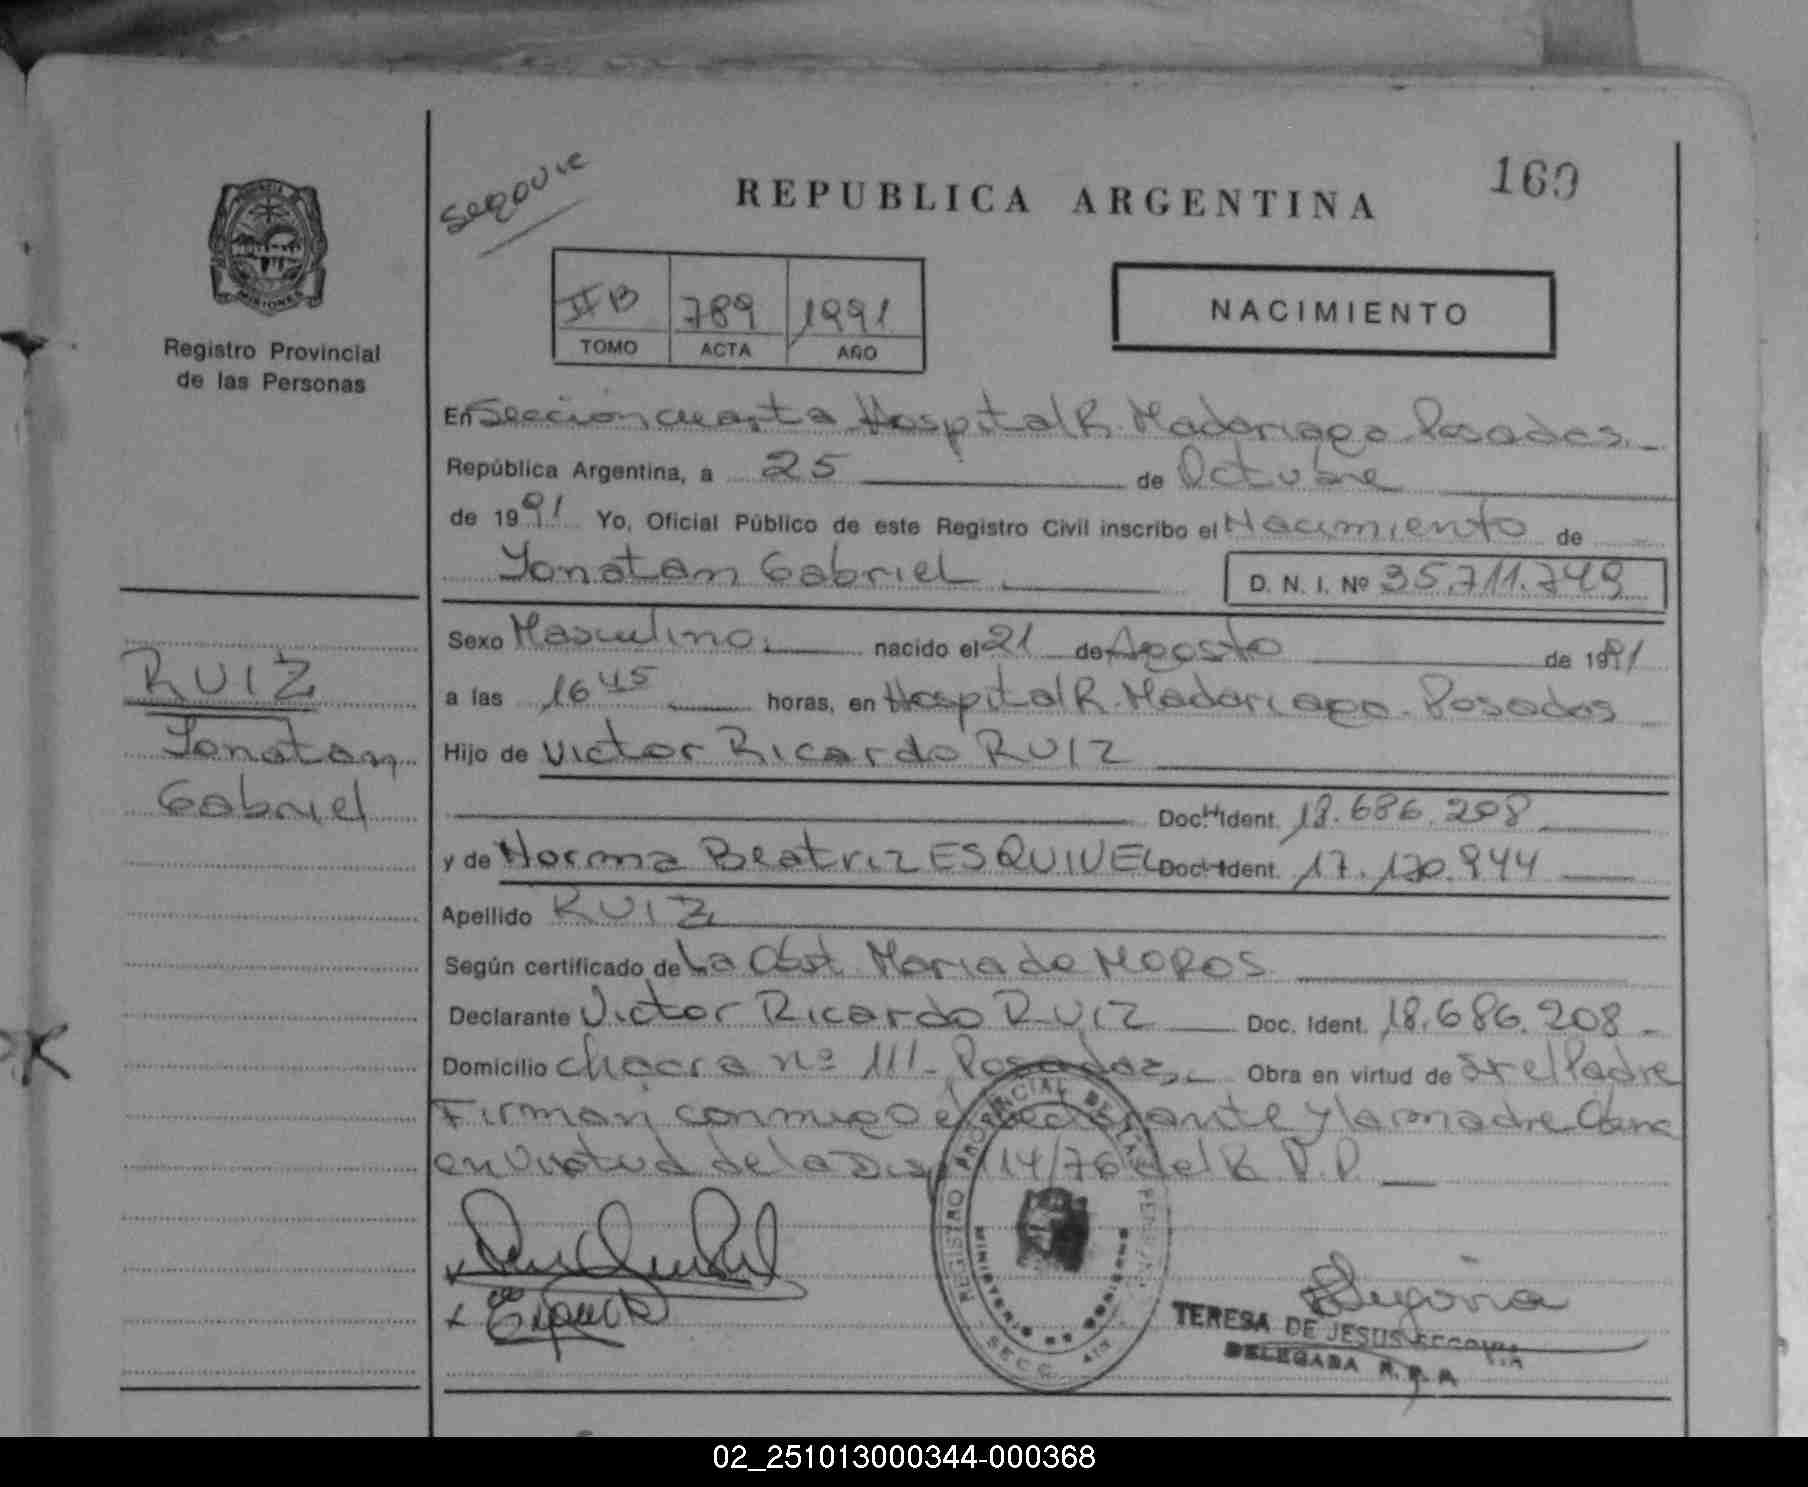 Segovia
REPUBLICA ARGENTINA
160
PROVINCIA
MISIONES
Registro Provincial
de las Personas
II B 789 1991
TOMO ACTA AÑO
NACIMIENTO
En Sección cuarta Hospital R. Madariaga Posadas
República Argentina, a 25 de Octubre
de 1991 Yo, Oficial Público de este Registro Civil inscribo el Nacimiento de
Yonatan Gabriel D. N. I. Nº 35.711.749
Sexo Masculino nacido el 21 de Agosto de 1991
a las 16 45 horas, en Hospital R. Madariaga. Posadas
Hijo de Victor Ricardo RUIZ
Doc. Ident. 18.686.208
y de Norma Beatriz ESQUIVEL Doc. Ident. 17.170.944
Apellido RUIZ
Según certificado de La Obst. Maria de MOROS
Declarante Victor Ricardo RUIZ Doc. Ident. 18.686.208-
Domicilio chacra nº 111- Posadas. Obra en virtud de Sr el Padre
Firman conmigo el declarante y la madre Obra
en Virtud de la Disp 114/76 del R. P. P.
RUIZ
Yonatan
Gabriel
REGISTRO PROVINCIAL DE LAS PERSONAS
MINISTERIO DE GOBIERNO
SECC. 4ta
Segovia
TERESA DE JESUS SEGOVIA
DELEGADA R. P. P.
02_251013000344-000368